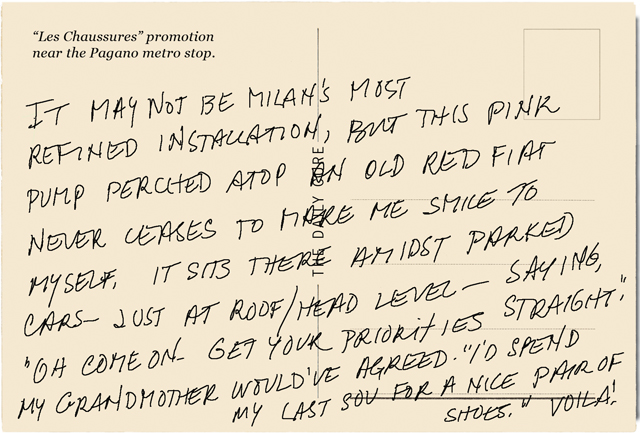 “Les Chaussures” promotion
near the Pagano metro stop.
IT MAY NOT BE MILAN'S MOST
REFINED INSTALLATION, BUT THIS PINK
PUMP PERCHED ATOP AN OLD RED FIAT
NEVER CEASES TO MAKE ME SMILE TO
MYSELF. IT SITS THERE AMIDST PARKED
CARS— JUST AT ROOF/HEAD LEVEL— SAYING,
"OH COME ON— GET YOUR PRIORITIES STRAIGHT."
MY GRANDMOTHER WOULD'VE AGREED. "I'D SPEND
MY LAST SOU FOR A NICE PAIR OF
SHOES." VOILA!